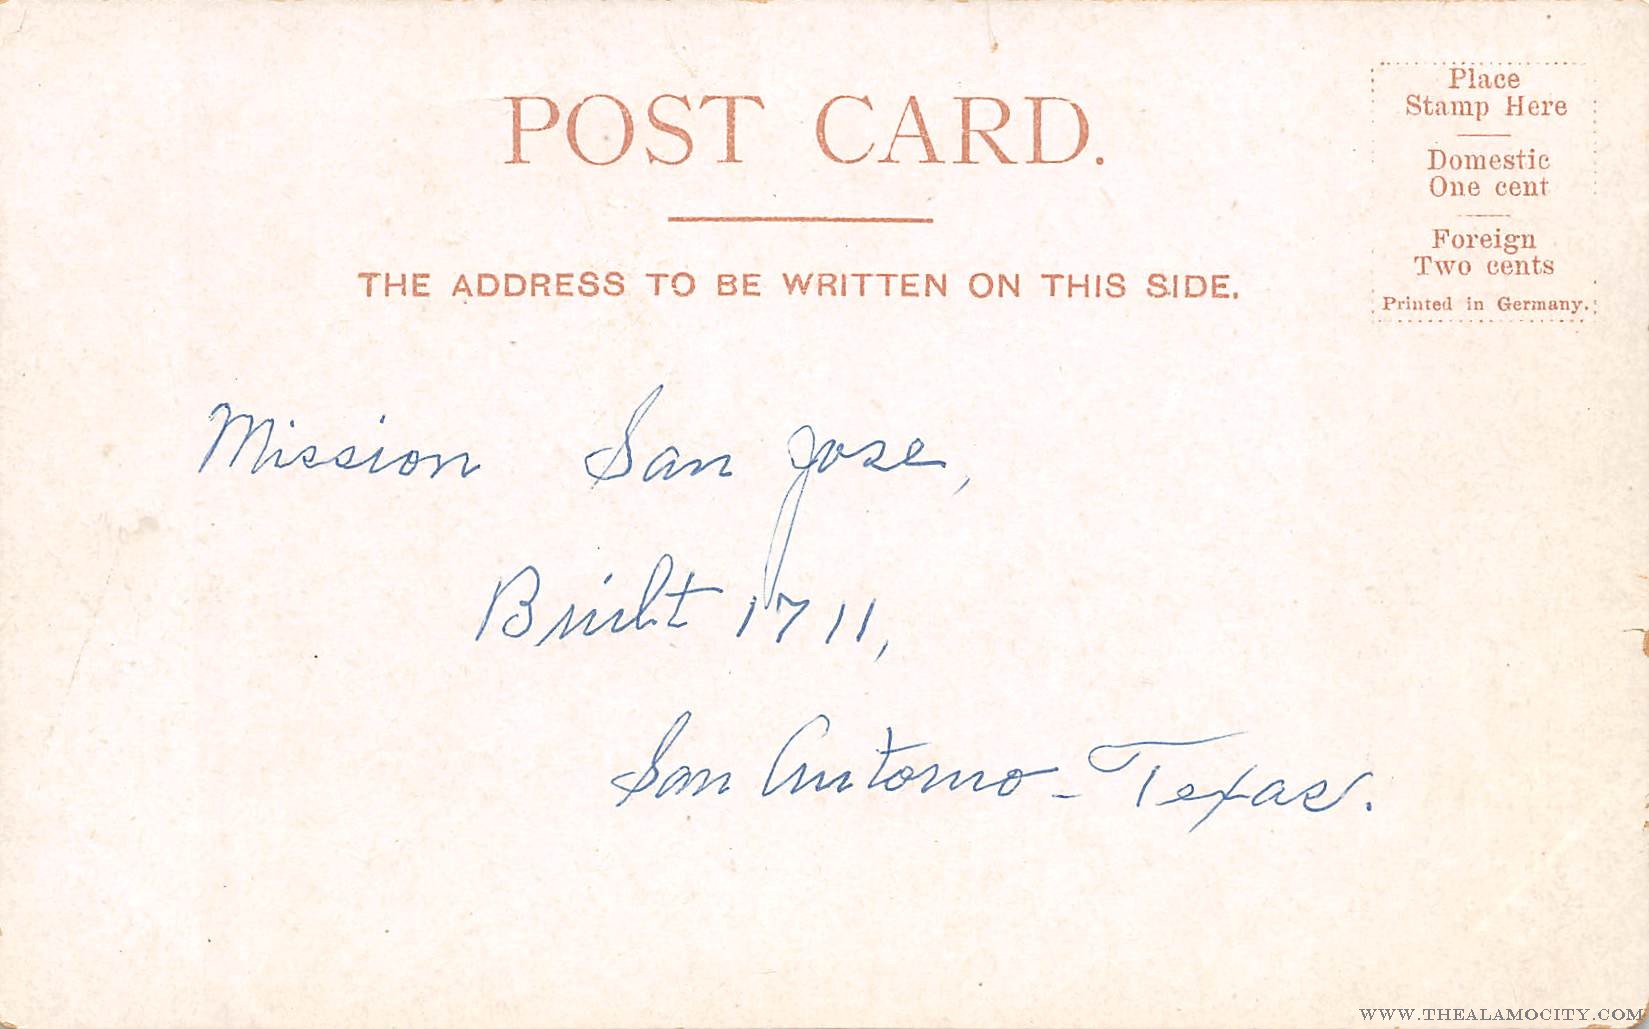 POST CARD.
THE ADDRESS TO BE WRITTEN ON THIS SIDE.
Place
Stamp Here
Domestic
One cent
Foreign
Two cents
Printed in Germany.
Mission San Jose,
Built 1711,
San Antonio - Texas.
WWW.THEALAMOCITY.COM